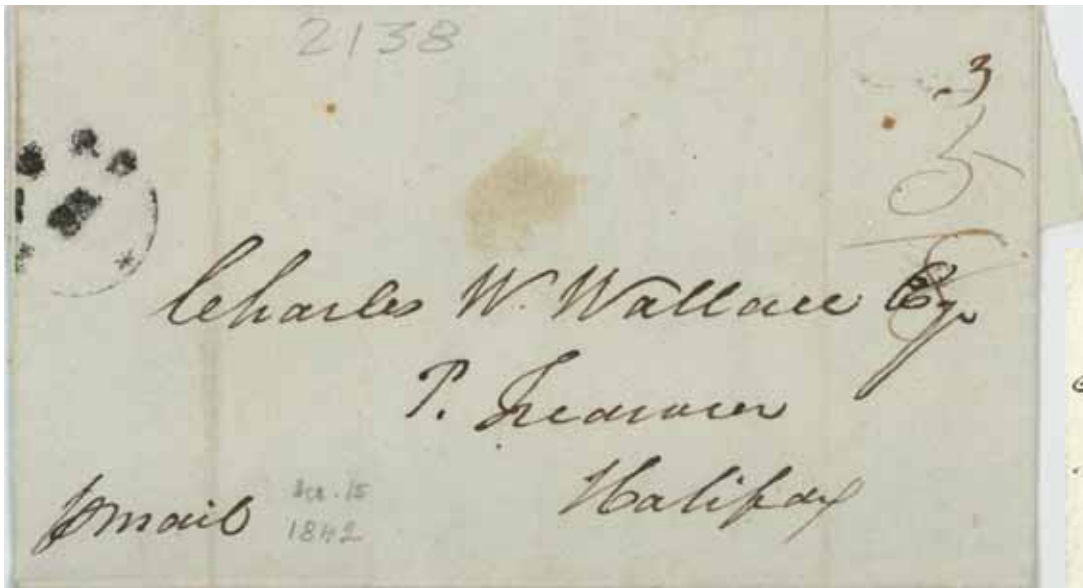 2138
3
5
Charles W. Wallace Esq.
P. Treasurer
Halifax
p mail
Dec. 15
1842